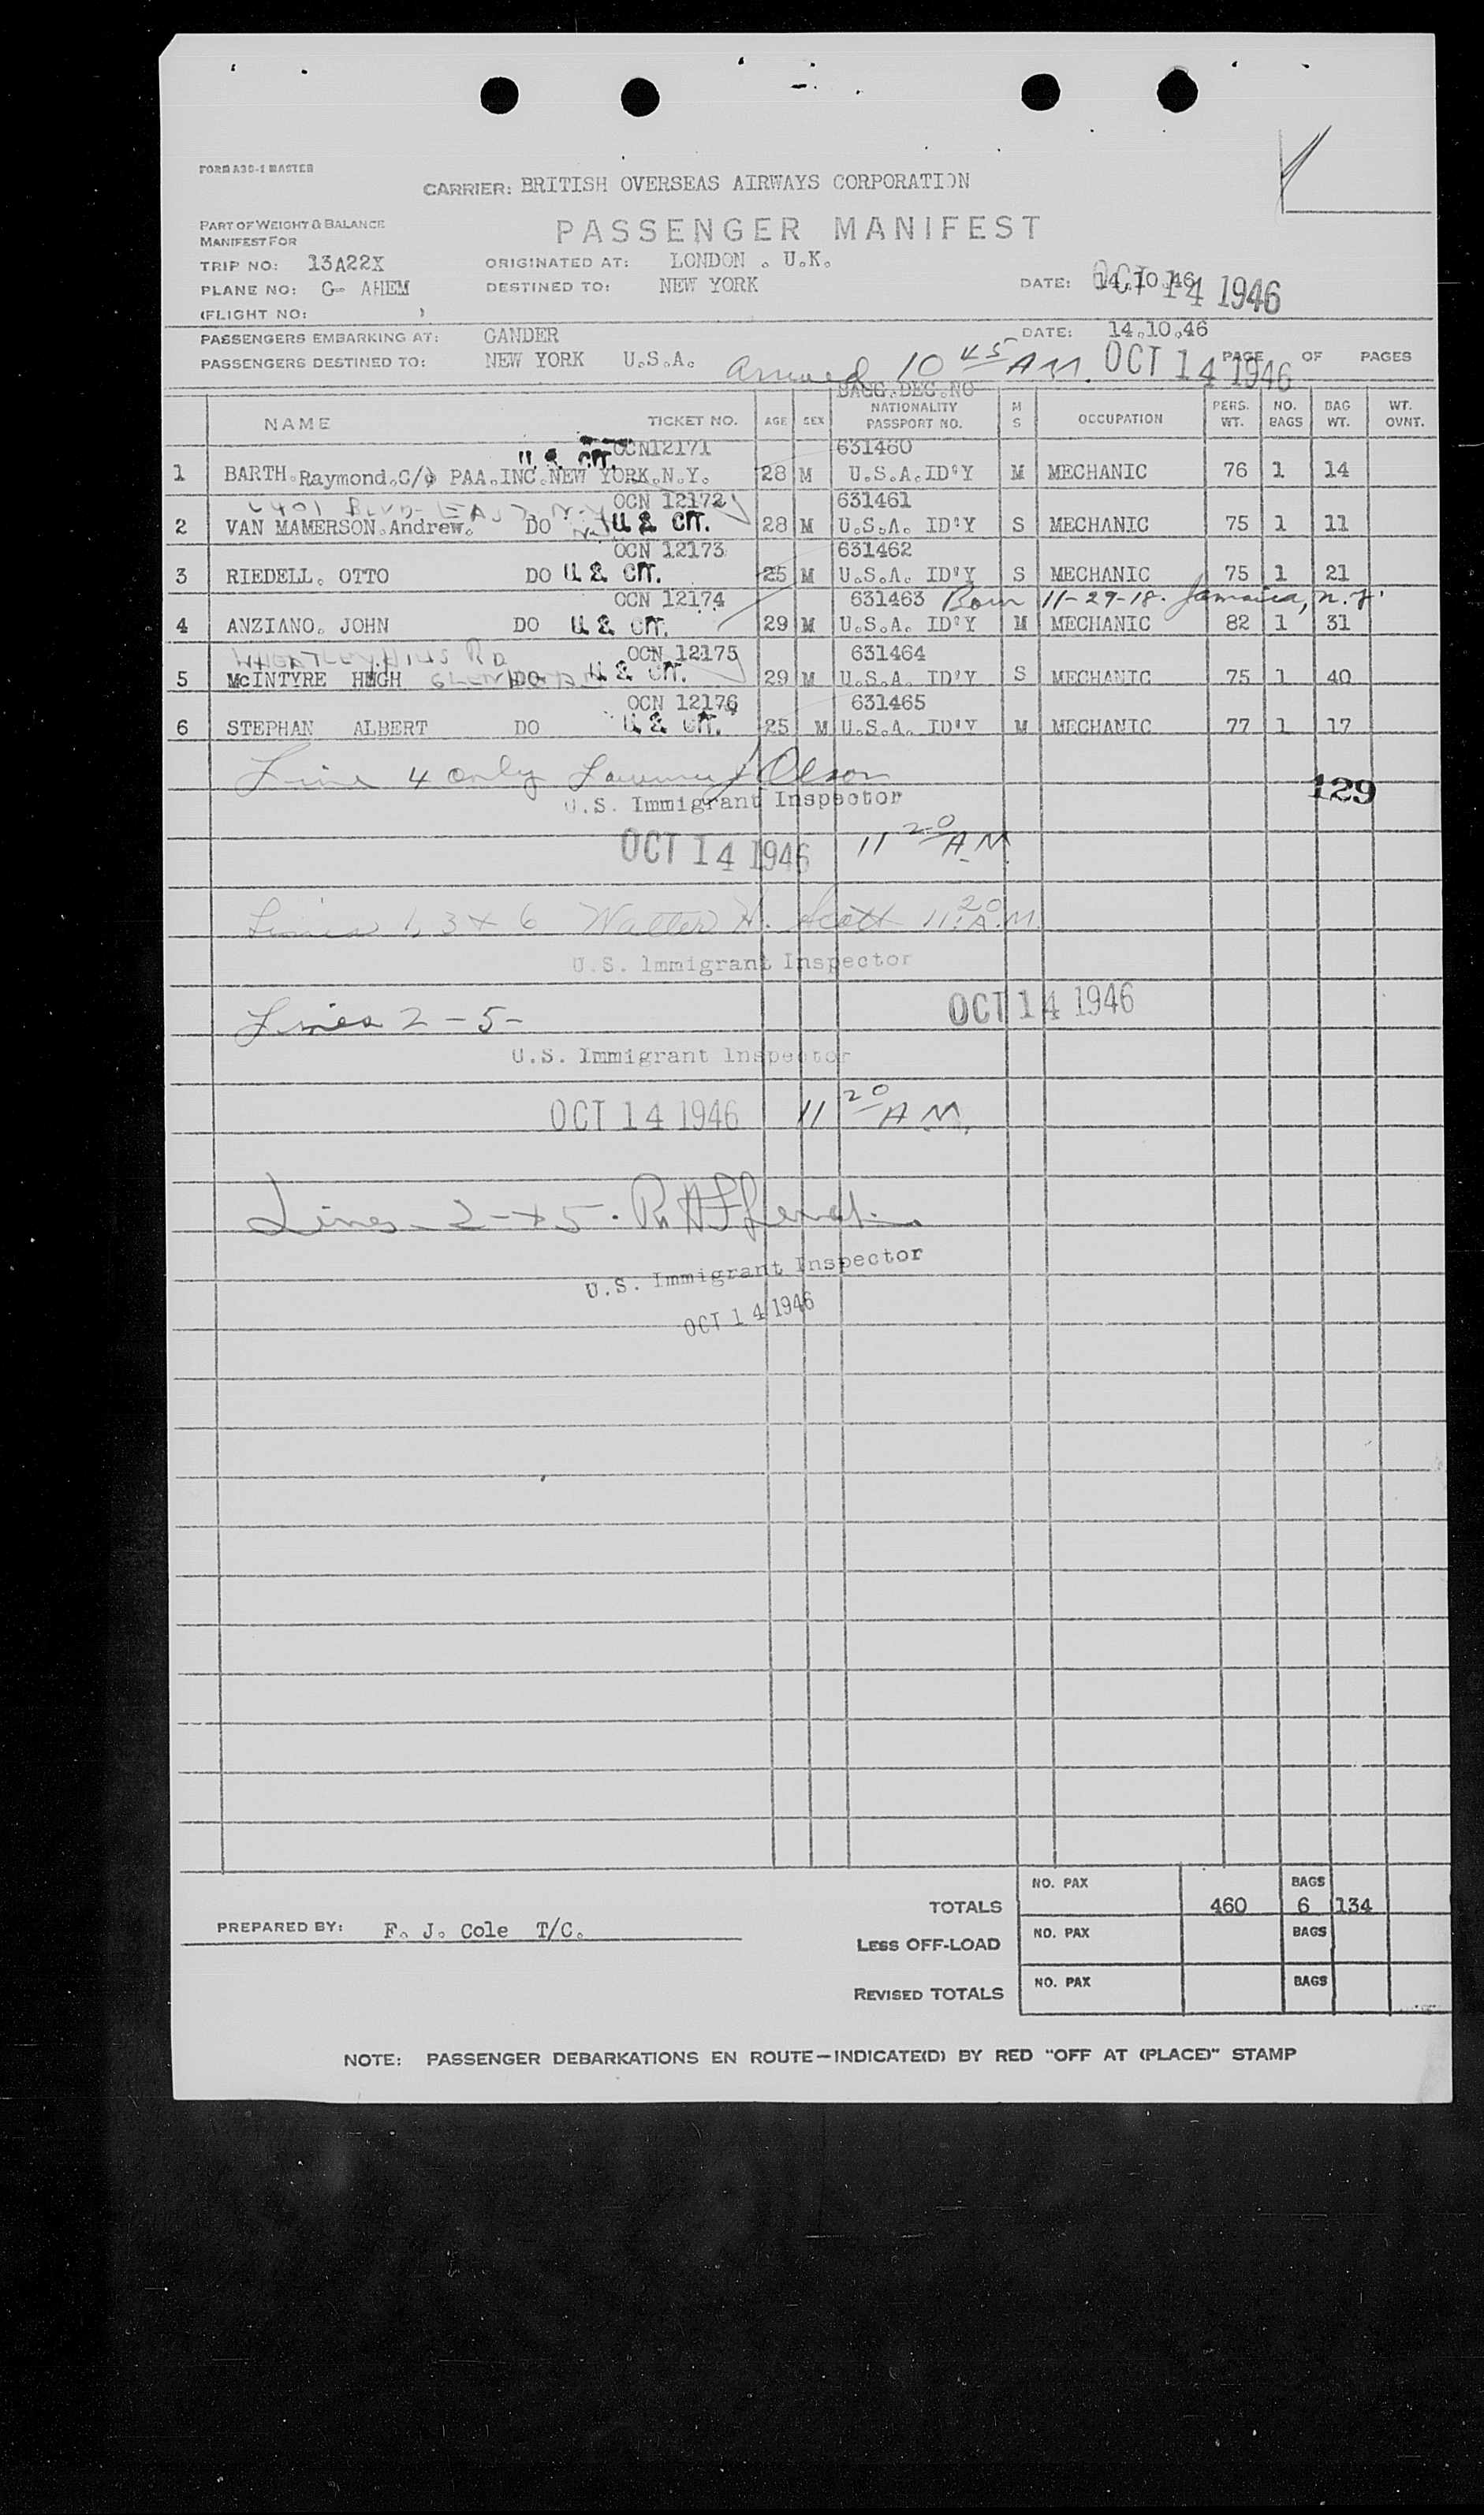 FORM A30-1 MASTER
CARRIER: BRITISH OVERSEAS AIRWAYS CORPORATION
PART OF WEIGHT & BALANCE
MANIFEST FOR
PASSENGER MANIFEST
TRIP NO: 13A22X ORIGINATED AT: LONDON . U.K.
PLANE NO: G- AHEM DESTINED TO: NEW YORK DATE: 14.10.46 OCT 14 1946
(FLIGHT NO: )
PASSENGERS EMBARKING AT: GANDER DATE: 14.10.46
PASSENGERS DESTINED TO: NEW YORK U.S.A. Arrived 10 45 AM. OCT 14 1946 PAGE OF PAGES
BAGG.DEC.NO
NAME TICKET NO. AGE SEX NATIONALITY PASSPORT NO. M S OCCUPATION PERS. WT. NO. BAGS BAG WT. WT. OVNT.
U.S. CIT. OCN12171 631460
1 BARTH.Raymond.C/o PAA.INC.NEW YORK.N.Y. 28 M U.S.A.ID'Y M MECHANIC 76 1 14
OCN 12172 631461
2 VAN MAMERSON.Andrew. DO U.S. CIT. 28 M U.S.A. ID'Y S MECHANIC 75 1 11
OCN 12173 631462
3 RIEDELL. OTTO DO U.S. CIT. 25 M U.S.A. ID'Y S MECHANIC 75 1 21
OCN 12174 631463 Born 11-29-18. Jamaica, N.Y.
4 ANZIANO. JOHN DO U.S. CIT. 29 M U.S.A. ID'Y M MECHANIC 82 1 31
WHEATLEY HILLS RD OCN 12175 631464
5 McINTYRE HUGH DO U.S. CIT. 29 M U.S.A. ID'Y S MECHANIC 75 1 40
OCN 12176 631465
6 STEPHAN ALBERT DO U.S. CIT. 25 M U.S.A. ID'Y M MECHANIC 77 1 17
Line 4 only Olson
U.S. Immigrant Inspector 129
OCT 14 1946 11 20 A.M.
Lines 1, 3 + 6 Walter H. Scott 11 20 A.M.
U.S. Immigrant Inspector
OCT 14 1946
Lines 2 - 5 -
U.S. Immigrant Inspector
OCT 14 1946 11 20 A.M.
Lines - 2 - + 5 -
U.S. Immigrant Inspector
OCT 14 1946
NO. PAX BAGS
TOTALS 460 6 134
PREPARED BY: F. J. Cole T/C.
LESS OFF-LOAD NO. PAX BAGS
REVISED TOTALS NO. PAX BAGS
NOTE: PASSENGER DEBARKATIONS EN ROUTE—INDICATE(D) BY RED "OFF AT (PLACE)" STAMP